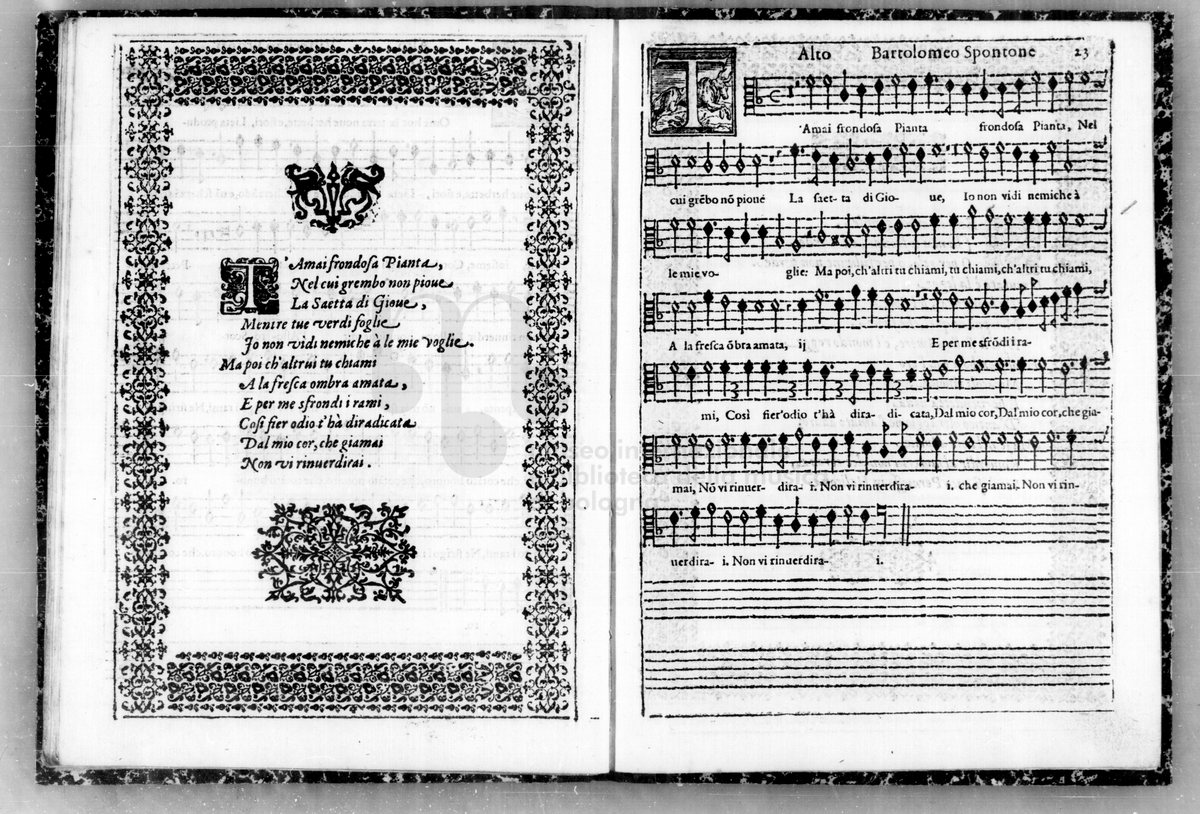 T'Amai frondosa Pianta,
Nel cui grembo non pioue
La Saetta di Gioue,
Mentre tue verdi foglie
Io non vidi nemiche à le mie voglie.
Ma poi ch'altrui tu chiami
A la fresca ombra amata,
E per me sfrondi i rami,
Così fier odio t'hà diradicata
Dal mio cor, che giamai
Non vi rinuerdirai.
Alto Bartolomeo Spontone 23
T'Amai frondosa Pianta frondosa Pianta, Nel
cui grẽbo nõ pioue La saet- ta di Gio- ue, Io non vidi nemiche à
le mie vo- glie: Ma poi, ch'altri tu chiami, tu chiami, ch'altri tu chiami,
A la fresca õbra amata, ij E per me sfrõdi i ra-
mi, Così fier'odio t'hà dira- di- cata, Dal mio cor, Dal mio cor, che gia-
mai, Nõ vi rinuer- dira- i. Non vi rinuerdira- i. che giamai, Non vi rin-
uerdira- i. Non vi rinuerdira- i.